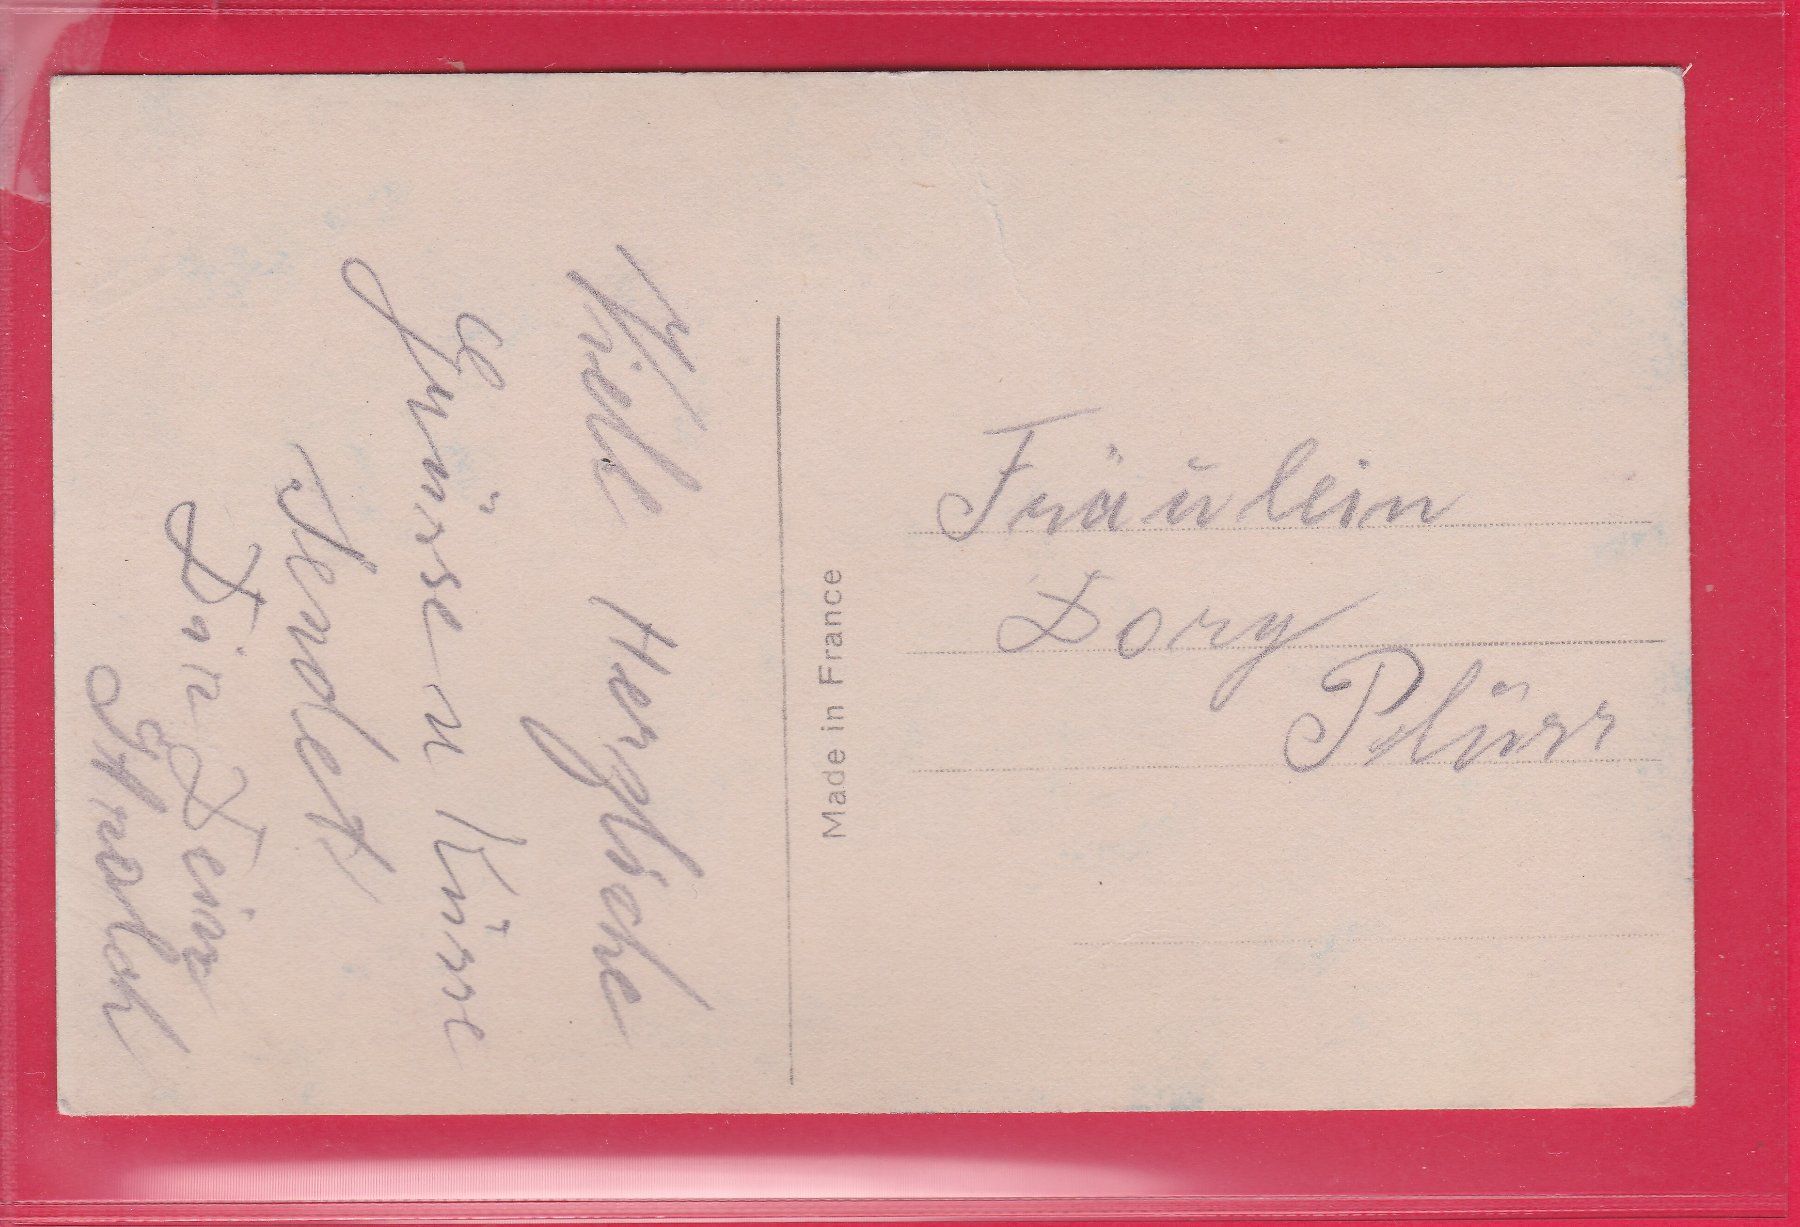 Viele Herzliche
Grüsse u Küsse
Sendet
Dir Dein
Made in France
Fräulein
Dory